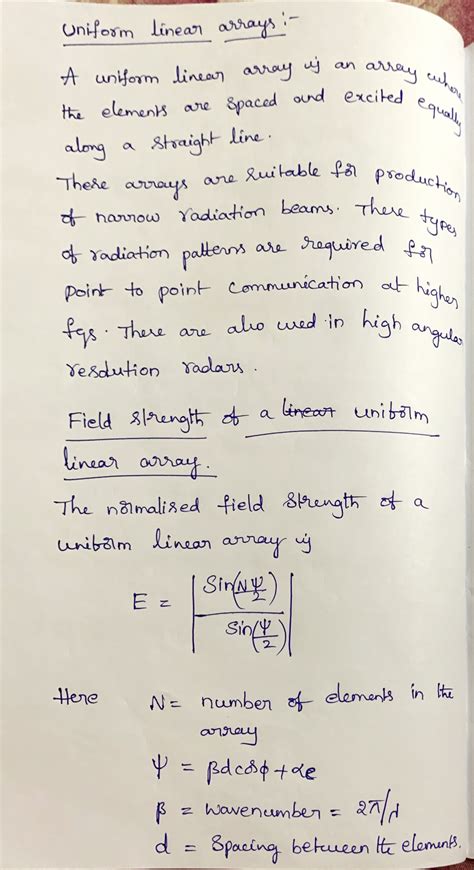 Uniform linear arrays :-
A uniform linear array is an array where
the elements are spaced and excited equally
along a straight line.
These arrays are suitable for production
of narrow radiation beams. These types
of radiation patterns are required for
point to point communication at higher
fqs. These are also used in high angular
resolution radars.
Field strength of a linear uniform
linear array.
The normalised field strength of a
uniform linear array is
E = | Sin(Nψ/2) / Sin(ψ/2) |
Here N = number of elements in the
array
ψ = βdcosϕ + αe
β = wavenumber = 2π/λ
d = Spacing between the elements.